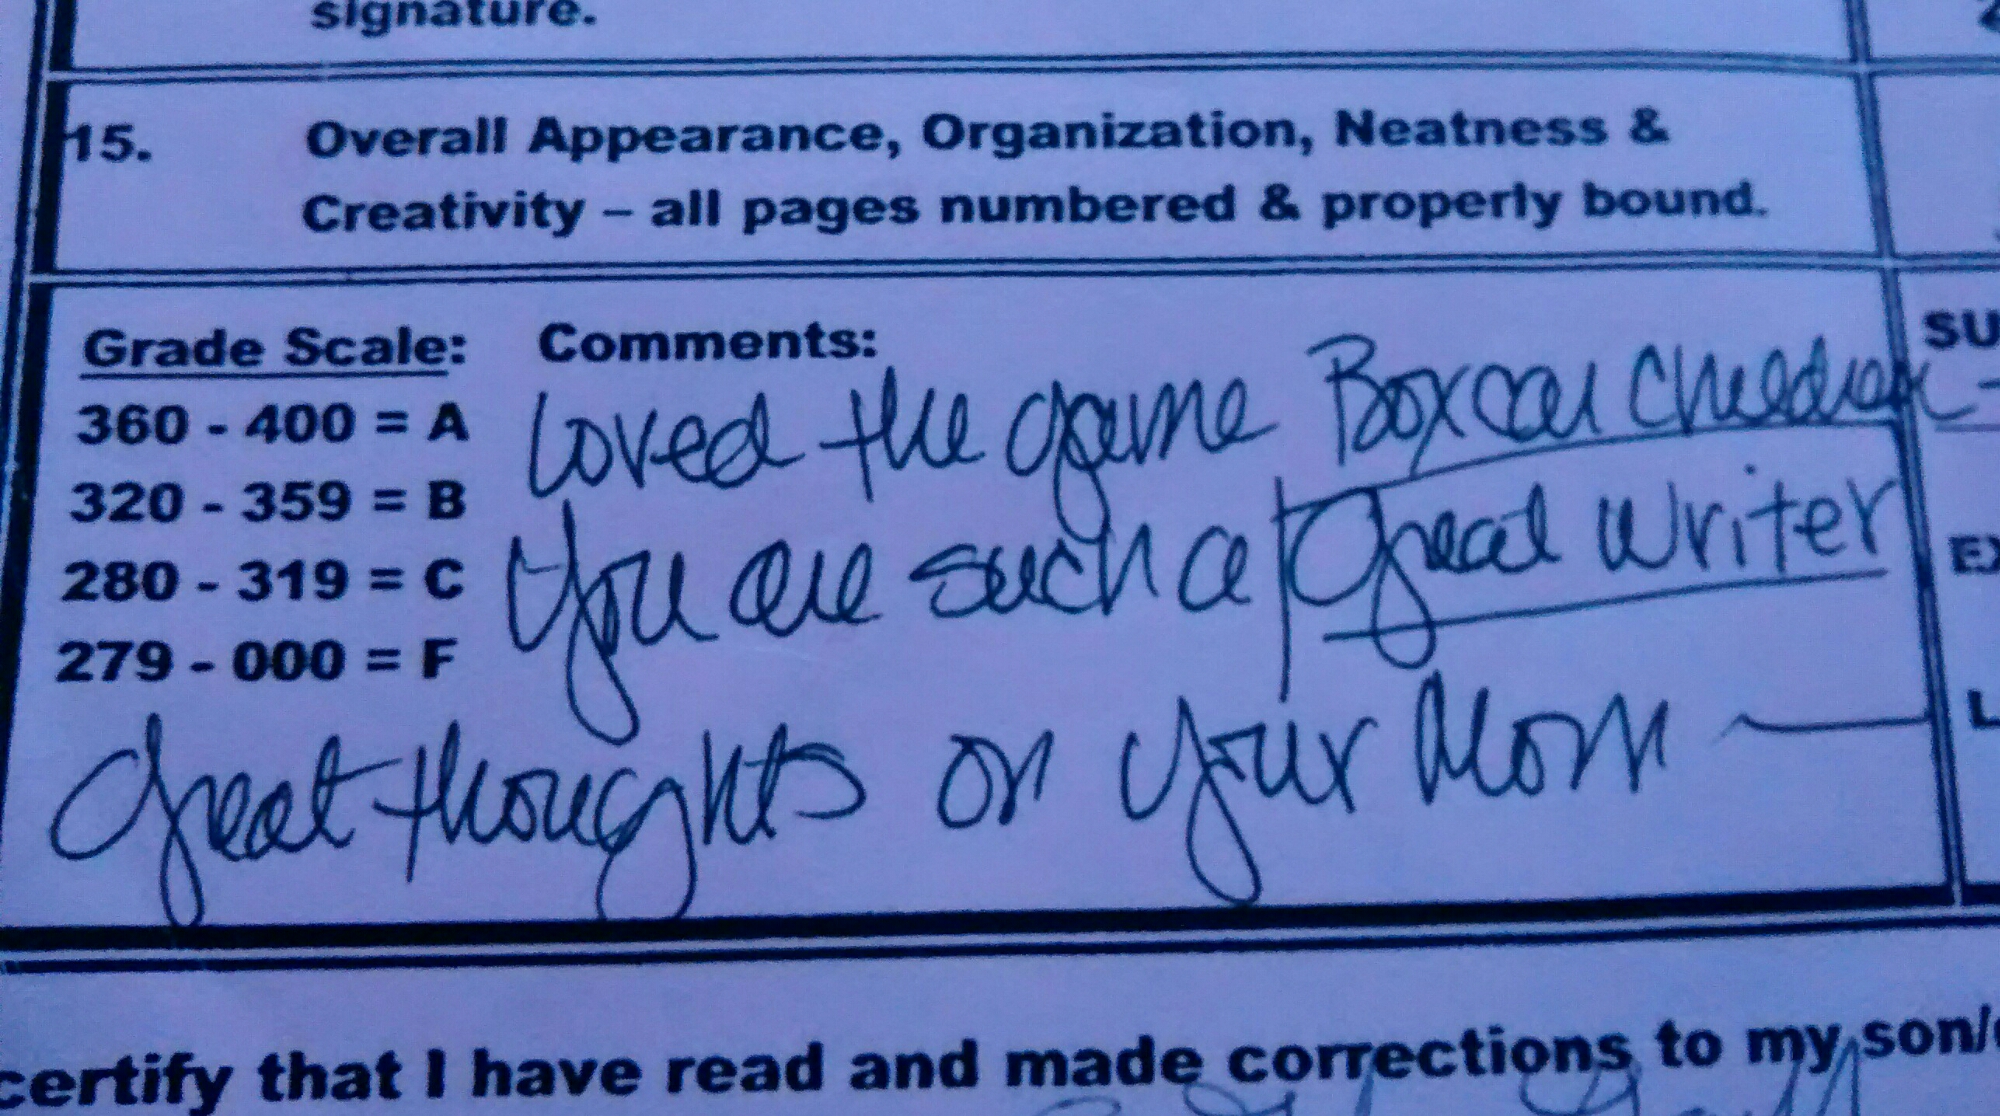 signature.
15. Overall Appearance, Organization, Neatness &
Creativity – all pages numbered & properly bound.
Grade Scale: Comments:
360 - 400 = A
320 - 359 = B
280 - 319 = C
279 - 000 = F
Loved the game Boxcar Children -
You are such a Great Writer
Great thoughts on your Mom —
SU
EX
L
certify that I have read and made corrections to my son/